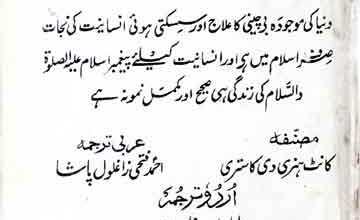 دنیا کی موجودہ بے چینی کا علاج اور سسکتی ہوئی انسانیت کی نجات
صرف اسلام میں ہی اور انسانیت کیلئے پیغمبر اسلام علیہ الصلوٰة
والسَّلام کی زندگی ہی صحیح اور مکمل نمونہ ہے
مصنفہ
عربی ترجمہ
کانٹ ہنری دی کاستری
احمد فتحی زاغلول پاشا
اردو ترجمہ